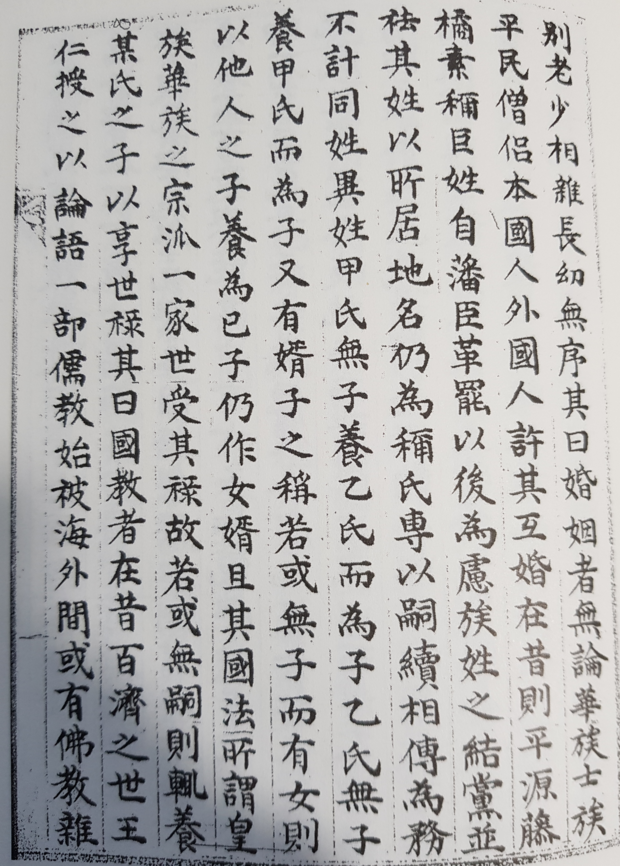 別老少相雜長幼無序其曰婚姻者無論華族士族
平民僧侶本國人外國人許其互婚在昔則平源藤
橘素稱巨姓自藩臣革罷以後為慮族姓之結黨並
袪其姓以所居地名仍為稱氏專以嗣續相傳為務
不計同姓異姓甲氏無子養乙氏而為子乙氏無子
養甲氏而為子又有婿子之稱若或無子而有女則
以他人之子養為已子仍作女婿且其國法所謂皇
族華族之宗派一家世受其祿故若或無嗣則輒養
某氏之子以享世祿其曰國教者在昔百濟之世王
仁授之以論語一部儒教始被海外間或有佛教雜